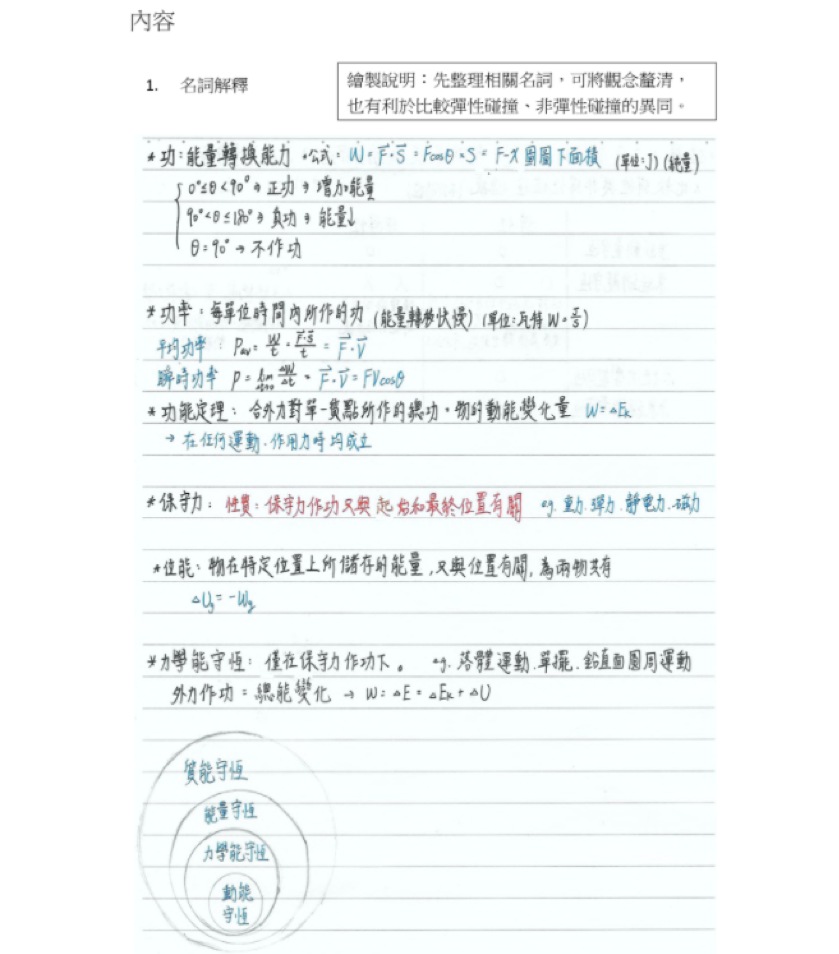 內容
1. 名詞解釋
繪製說明：先整理相關名詞，可將觀念釐清，
也有利於比較彈性碰撞、非彈性碰撞的異同。
*功：能量轉換能力 •公式：W = F⃗·S⃗ = Fcosθ·S = F-X 圖圍下面積 (單位:J) (純量)
0°≤θ<90° → 正功 → 增加能量
90°<θ≤180° → 負功 → 能量↓
θ=90° → 不作功
*功率：每單位時間內所作的功 (能量轉移快慢) (單位:瓦特 W = J/S)
平均功率： Pav = W/t = F⃗·S⃗/t = F⃗·V⃗
瞬時功率 P = lim Δt→0 ΔW/Δt = F⃗·V⃗ = FVcosθ
*功能定理：合外力對單一質點所作的總功=物的動能變化量 W=ΔEk
→ 在任何運動、作用力時均成立
*保守力：性質：保守力作功只與起始和最終位置有關 eg. 重力、彈力、靜電力、磁力
*位能：物在特定位置上所儲存的能量，只與位置有關，為兩物共有
ΔUg = -Wg
*力學能守恆：僅在保守力作功下。 eg. 落體運動、單擺、鉛直面圓周運動
外力作功 = 總能變化 → W = ΔE = ΔEk + ΔU
質能守恆
能量守恆
力學能守恆
動能
守恆